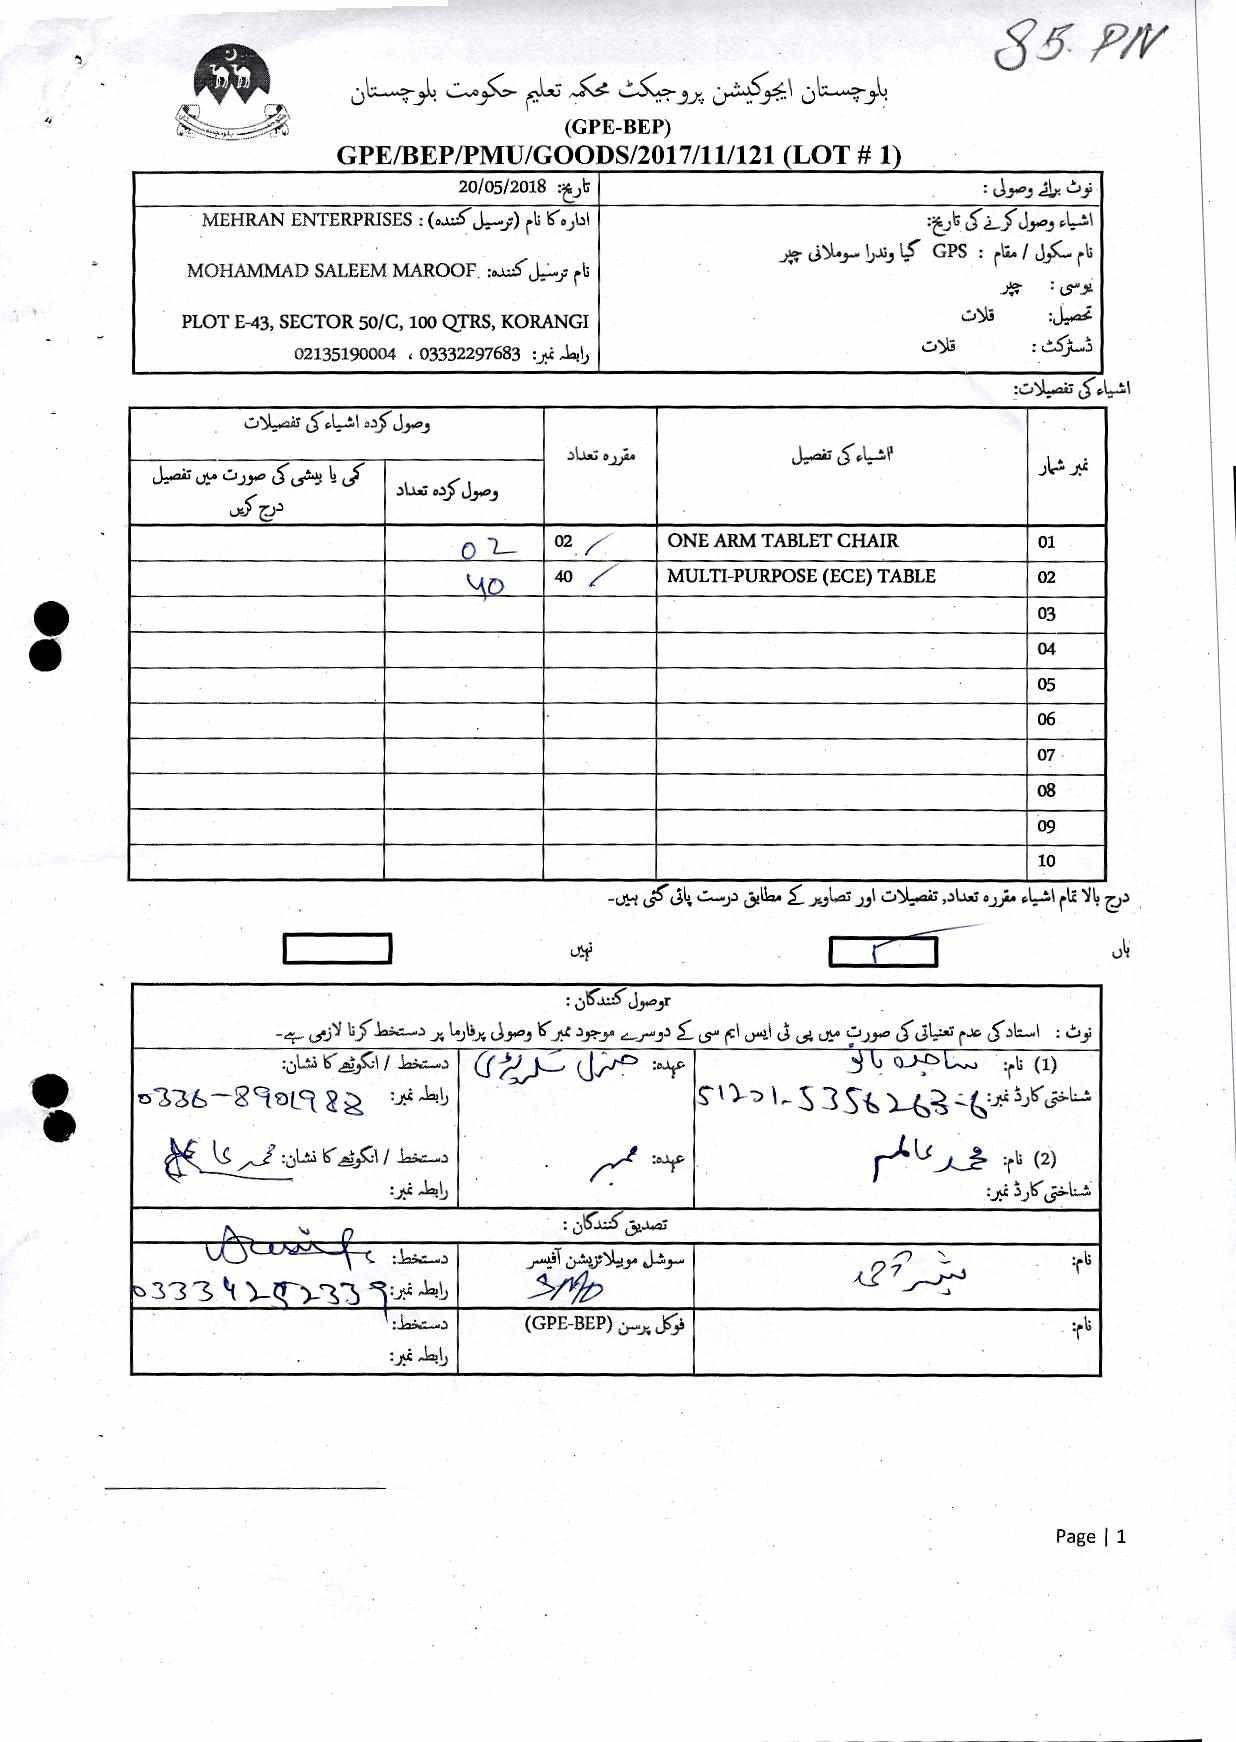 85. PN
بلوچستان ایجوکیشن پروجیکٹ محکمہ تعلیم حکومت بلوچستان
(GPE-BEP)
GPE/BEP/PMU/GOODS/2017/11/121 (LOT # 1)
نوٹ برائے وصولی :
تاریخ: 20/05/2018
اشیاء وصول کرنے کی تاریخ:
نام سکول / مقام : GPS گیا وندرا سوملانی چپر
یوسی : چپر
تحصیل: قلات
ڈسٹرکٹ : قلات
ادارہ کا نام (ترسیل کنندہ) : MEHRAN ENTERPRISES
نام ترسیل کنندہ: MOHAMMAD SALEEM MAROOF.
PLOT E-43, SECTOR 50/C, 100 QTRS, KORANGI
رابطہ نمبر: 03332297683 ، 02135190004
اشیاء کی تفصیلات:
نمبر شمار اشیاء کی تفصیل مقررہ تعداد وصول کردہ اشیاء کی تفصیلات
وصول کردہ تعداد کمی یا بیشی کی صورت میں تفصیل درج کریں
01 ONE ARM TABLET CHAIR 02 02
02 MULTI-PURPOSE (ECE) TABLE 40 40
03
04
05
06
07
08
09
10
درج بالا تمام اشیاء مقررہ تعداد, تفصیلات اور تصاویر کے مطابق درست پائی گئی ہیں۔
ہاں نہیں
وصول کنندگان :
نوٹ : استاد کی عدم تعیناتی کی صورت میں پی ٹی ایس ایم سی کے دوسرے موجود ممبر کا وصولی پرفارما پر دستخط کرنا لازمی ہے۔
(1) نام: ساجدہ بانو عہدہ: جنرل سکریٹری دستخط / انگوٹھے کا نشان:
شناختی کارڈ نمبر: 51201-5356263-6 رابطہ نمبر: 0336-8901988
(2) نام: محمد عالم عہدہ: ممبر دستخط / انگوٹھے کا نشان: محمد عالم
شناختی کارڈ نمبر: رابطہ نمبر:
تصدیق کنندگان :
نام: سوشل موبیلائزیشن آفیسر دستخط:
SMO رابطہ نمبر: 03334252339
نام: فوکل پرسن (GPE-BEP) دستخط:
رابطہ نمبر:
Page | 1